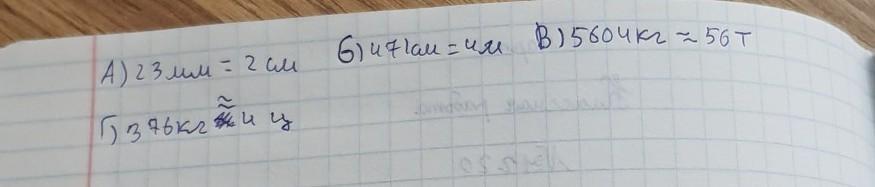 А) 23 мм = 2 см б) 471 см = 4 м В) 5604 кг ≈ 56 т
Г) 376 кг ≈ 4 ц